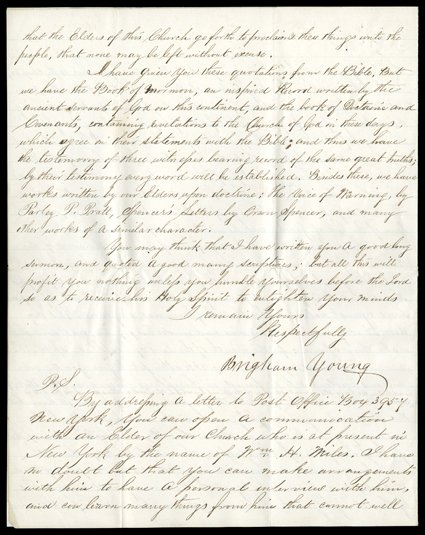 that the Elders of this Church go forth to proclaim these things unto the
people, that none may be left without excuse.
I have given You these quotations from the Bible, But
we have the Book of Mormon, an inspired Record written by the
ancient servants of God on this continent, and the book of Doctrine and
Covenants, containing revelations to the Church of God in these days,
which agree in their statements with the Bible; and thus we have
the testimony of three witnesses bearing record of the same great truths;
by their testimony every word will be established. Besides these, we have
works written by our Elders upon doctrine; the Voice of Warning, by
Parley P. Pratt, Spencer's Letters by Orson Spencer, and many
other works of a similar character.
You may think that I have written you a good long
sermon, and quoted a good many scriptures; but all this will
profit you nothing unless you humble yourselves before the Lord
so as to receive his Holy Spirit to enlighten your minds
I remain Yours
Respectfully
Brigham Young
P.S.
By addressing a letter to Post Office Box 3957
New York, you can open a communication
with an Elder of our Church who is at present in
New York by the name of Wm H. Miles. I have
no doubt but that you can make arrangements
with him to have a personal interview with him,
and can learn many things from him that cannot well